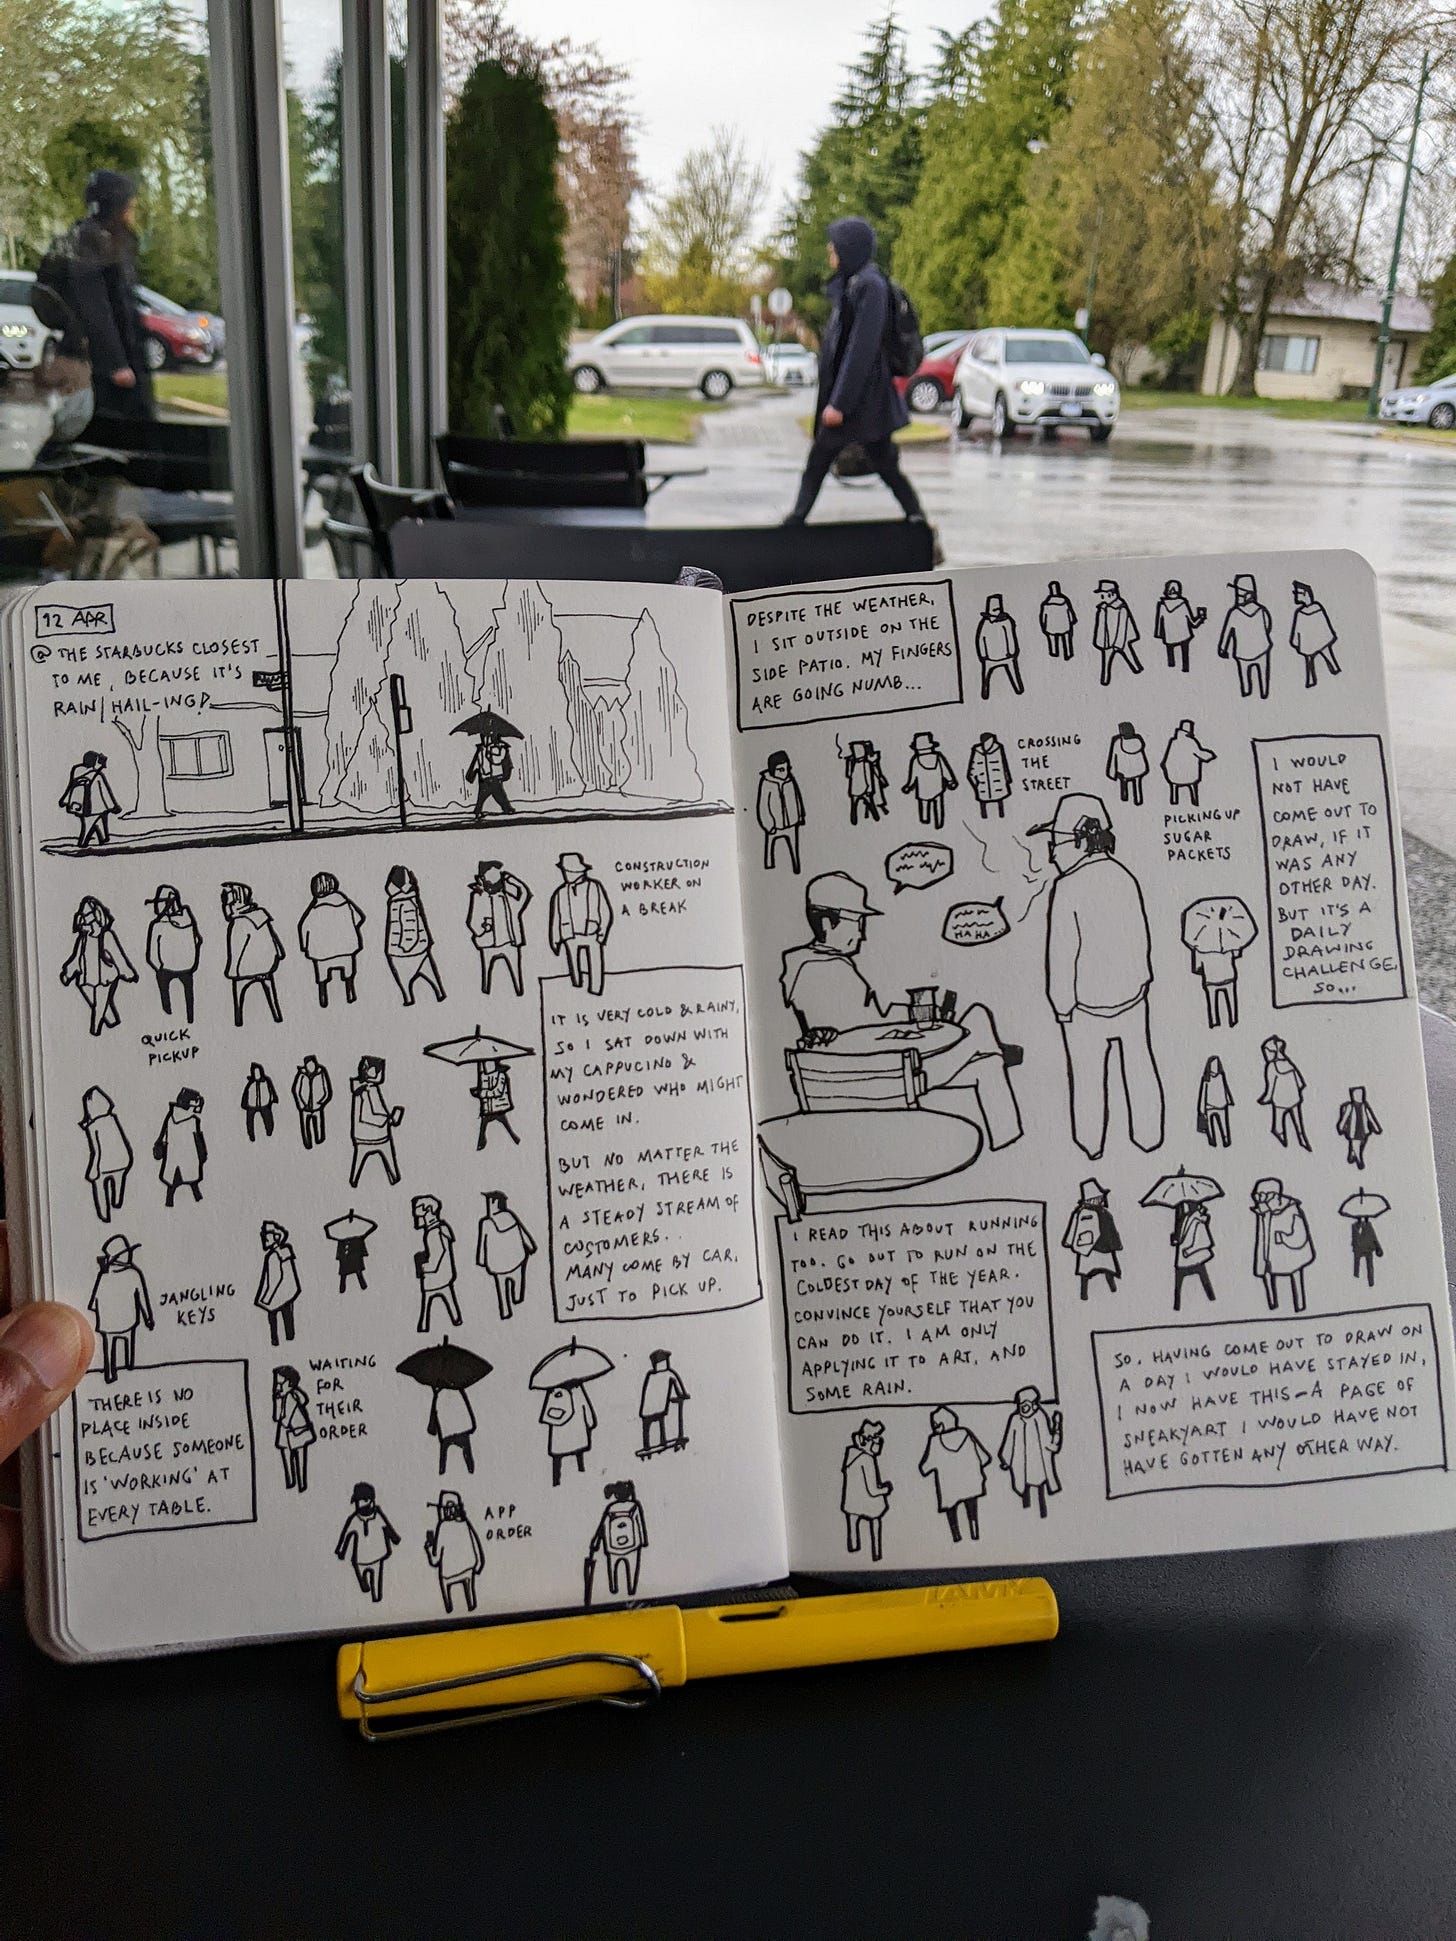 12 APR
@ THE STARBUCKS CLOSEST
TO ME, BECAUSE IT'S
RAIN/HAIL-ING!
CONSTRUCTION
WORKER ON
A BREAK
QUICK
PICKUP
IT IS VERY COLD & RAINY,
SO I SAT DOWN WITH
MY CAPPUCINO &
WONDERED WHO MIGHT
COME IN.
BUT NO MATTER THE
WEATHER, THERE IS
A STEADY STREAM OF
CUSTOMERS..
MANY COME BY CAR,
JUST TO PICK UP.
JANGLING
KEYS
WAITING
FOR
THEIR
ORDER
THERE IS NO
PLACE INSIDE
BECAUSE SOMEONE
IS 'WORKING' AT
EVERY TABLE.
APP
ORDER
DESPITE THE WEATHER,
I SIT OUTSIDE ON THE
SIDE PATIO. MY FINGERS
ARE GOING NUMB...
CROSSING
THE
STREET
PICKING UP
SUGAR
PACKETS
I WOULD
NOT HAVE
COME OUT TO
DRAW, IF IT
WAS ANY
OTHER DAY.
BUT IT'S A
DAILY
DRAWING
CHALLENGE,
SO...
HA HA..
I READ THIS ABOUT RUNNING
TOO. GO OUT TO RUN ON THE
COLDEST DAY OF THE YEAR.
CONVINCE YOURSELF THAT YOU
CAN DO IT. I AM ONLY
APPLYING IT TO ART, AND
SOME RAIN.
SO, HAVING COME OUT TO DRAW ON
A DAY I WOULD HAVE STAYED IN,
I NOW HAVE THIS - A PAGE OF
SNEAKYART I WOULD HAVE NOT
HAVE GOTTEN ANY OTHER WAY.
LAMY